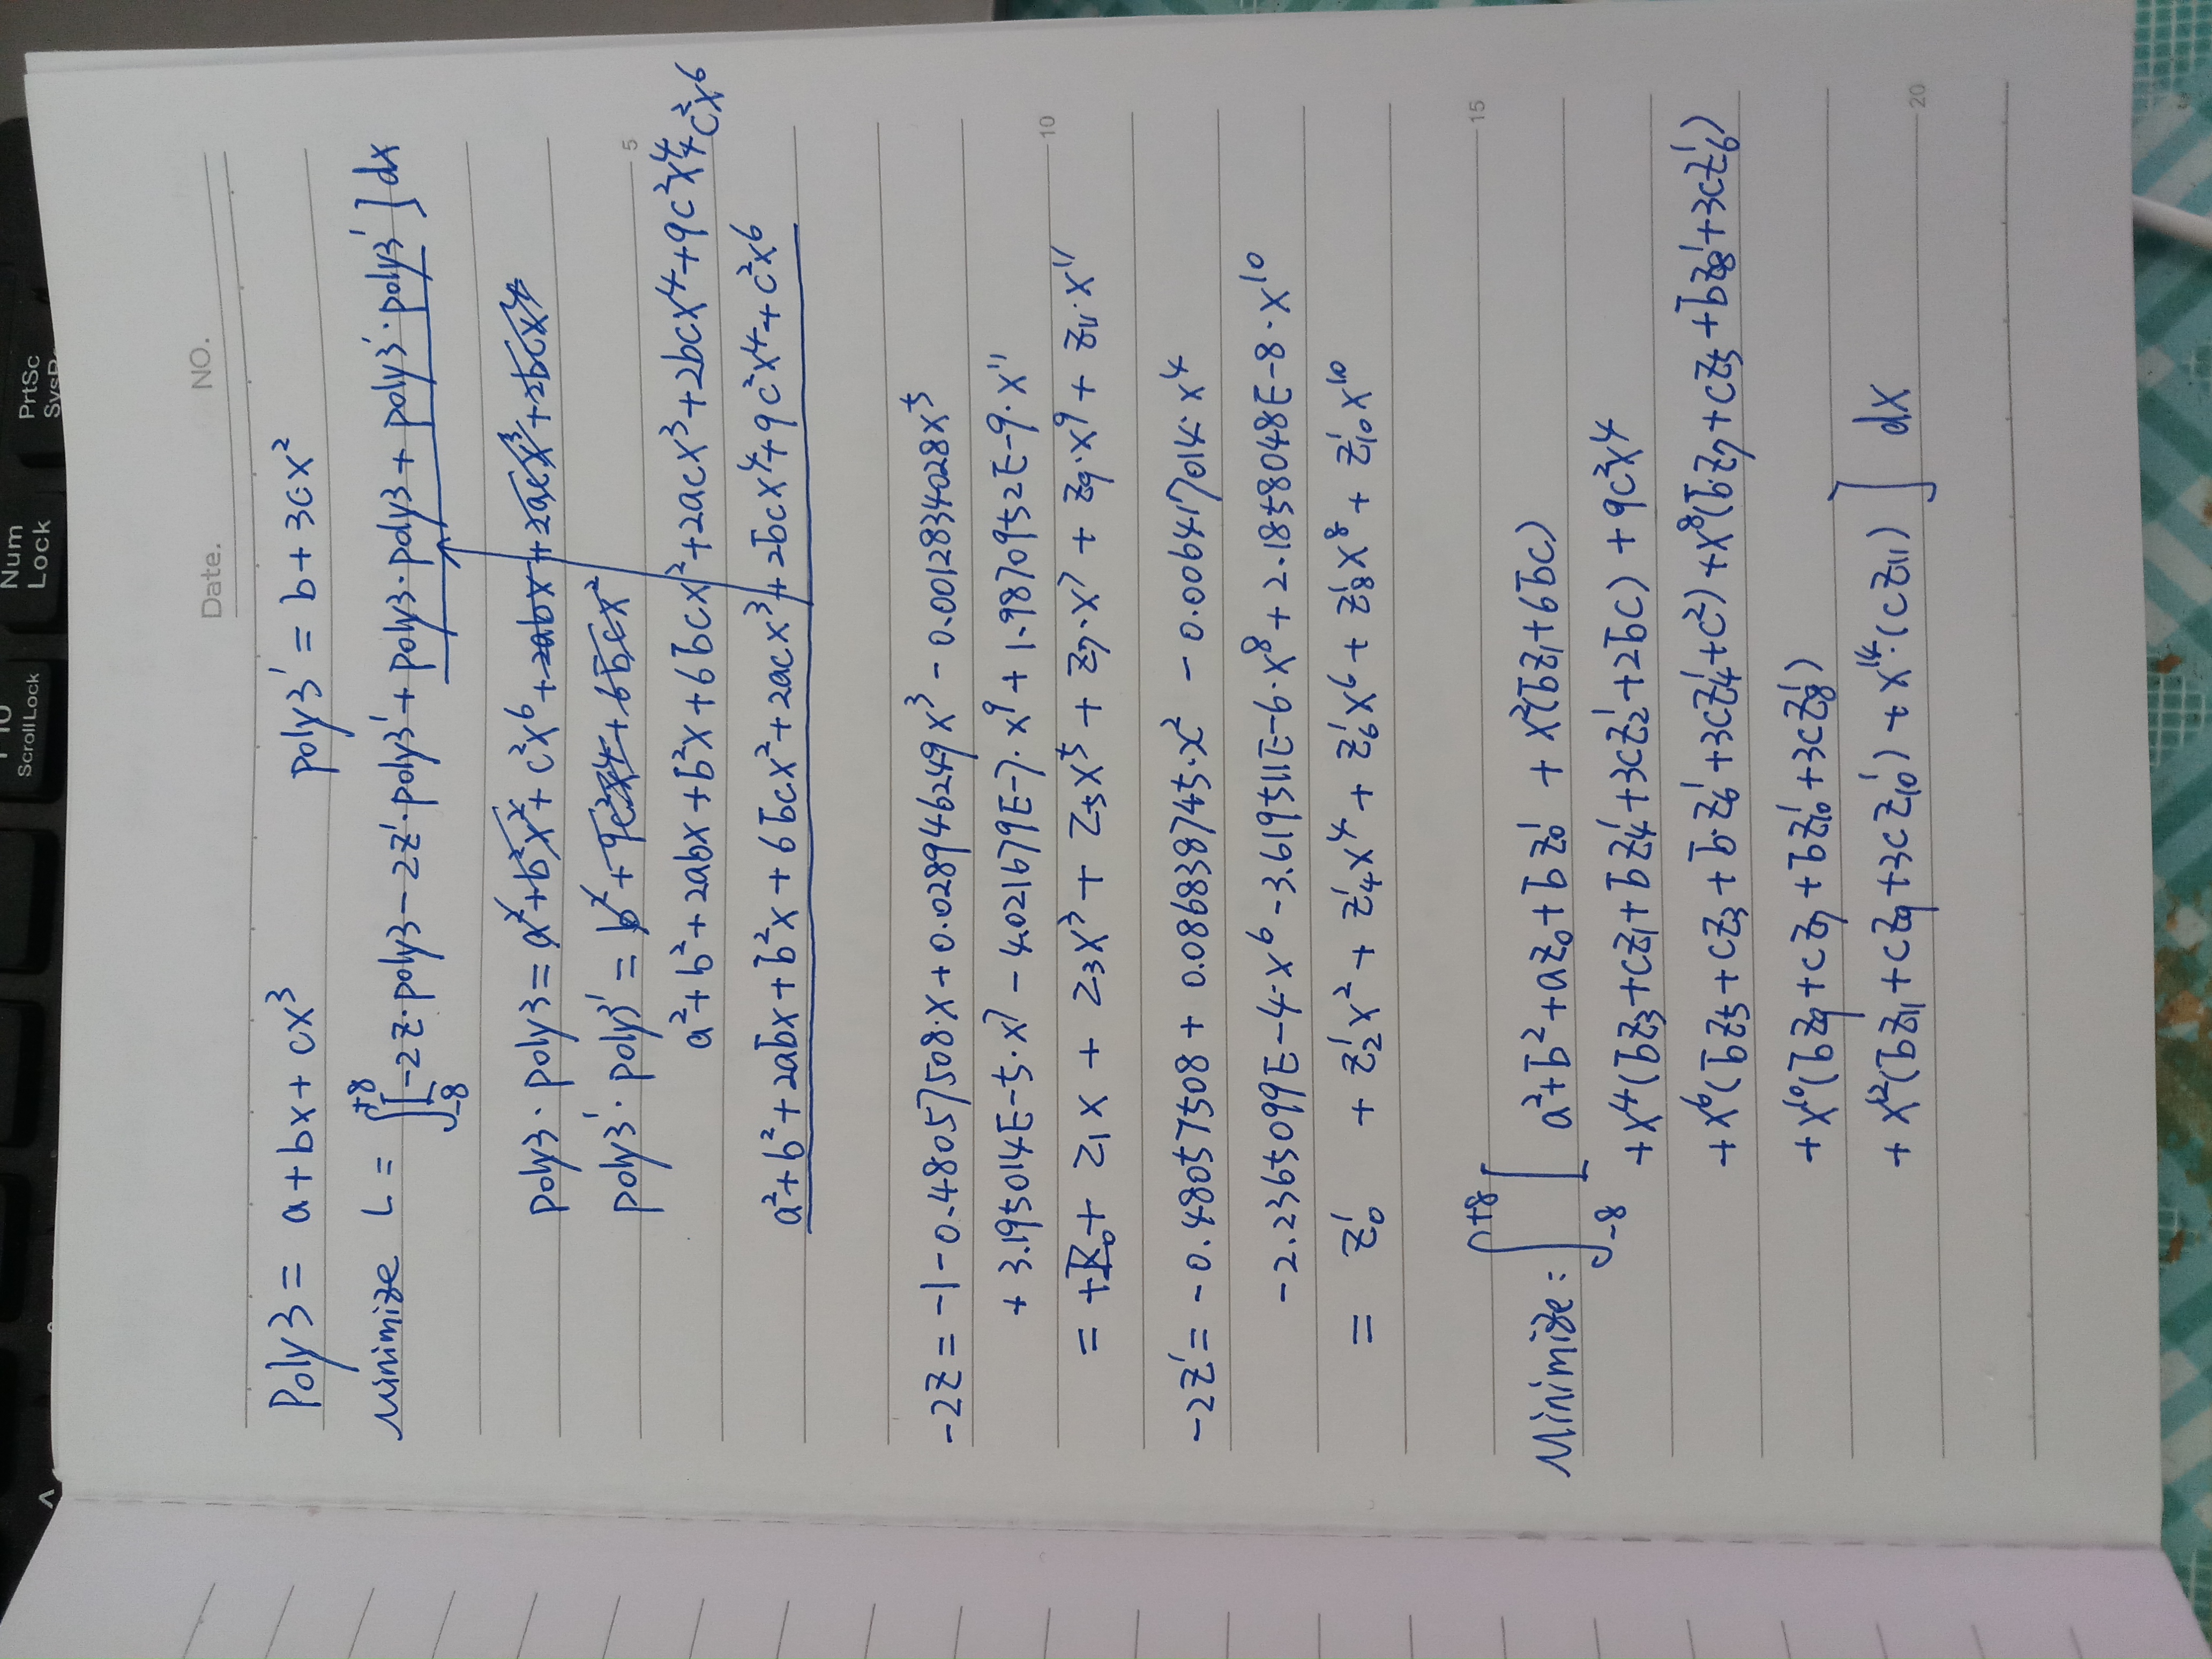 F10
ScrollLock
Num
Lock
PrtSc
Date. NO.
Poly3 = a+bx+cx³ poly3' = b+3cx²
Minimize L = ∫₋₈⁺⁸[-2z·poly3-2z'·poly3'+poly3·poly3+poly3'·poly3']dx
poly3·poly3=a²+b²x²+c²x⁶+2abx+2acx³+2bcx⁴
poly3'·poly3' = b²+9c²x⁴+6bcx²
5
a²+b²+2abx+b²x+6bcx²+2acx³+2bcx⁴+9c²x⁴+c²x⁶
a²+b²+2abx+b²x+6bcx²+2acx³+2bcx⁴+9c²x⁴+c²x⁶
-2z = -1-0.48057508·x+0.028946249x³-0.0012834028x⁵
+3.195014E-5·x⁷-4.021679E-7·x⁹+1.9870952E-9·x¹¹
10
= +z₀+ z₁x + z₃x³ + z₅x⁵ + z₇·x⁷ + z₉·x⁹ + z₁₁·x¹¹
-2z' = -0.48057508+ 0.086838745·x² -0.006417014·x⁴
-2.2365099E-4·x⁶-3.619511E-6·x⁸+2.1858048E-8·x¹⁰
= z₀' +z₂'x²+z₄'x⁴+z₆'x⁶+z₈'x⁸+z₁₀'x¹⁰
15
Minimize: ∫₋₈⁺⁸[ a²+b²+az₀+bz₀' +x²(bz₁+6bc)
+x⁴(bz₃+cz₁+bz₄'+3cz₂'+2bc)+9c²x⁴
+x⁶(bz₅+cz₃+b·z₆'+3cz₄'+c²)+x⁸(b·z₇+cz₅+bz₈'+3cz₆')
+x¹⁰(bz₉+cz₇+bz₁₀'+3cz₈')
+x¹²(bz₁₁+cz₉+3cz₁₀')+x¹⁴·(cz₁₁)] dx
20